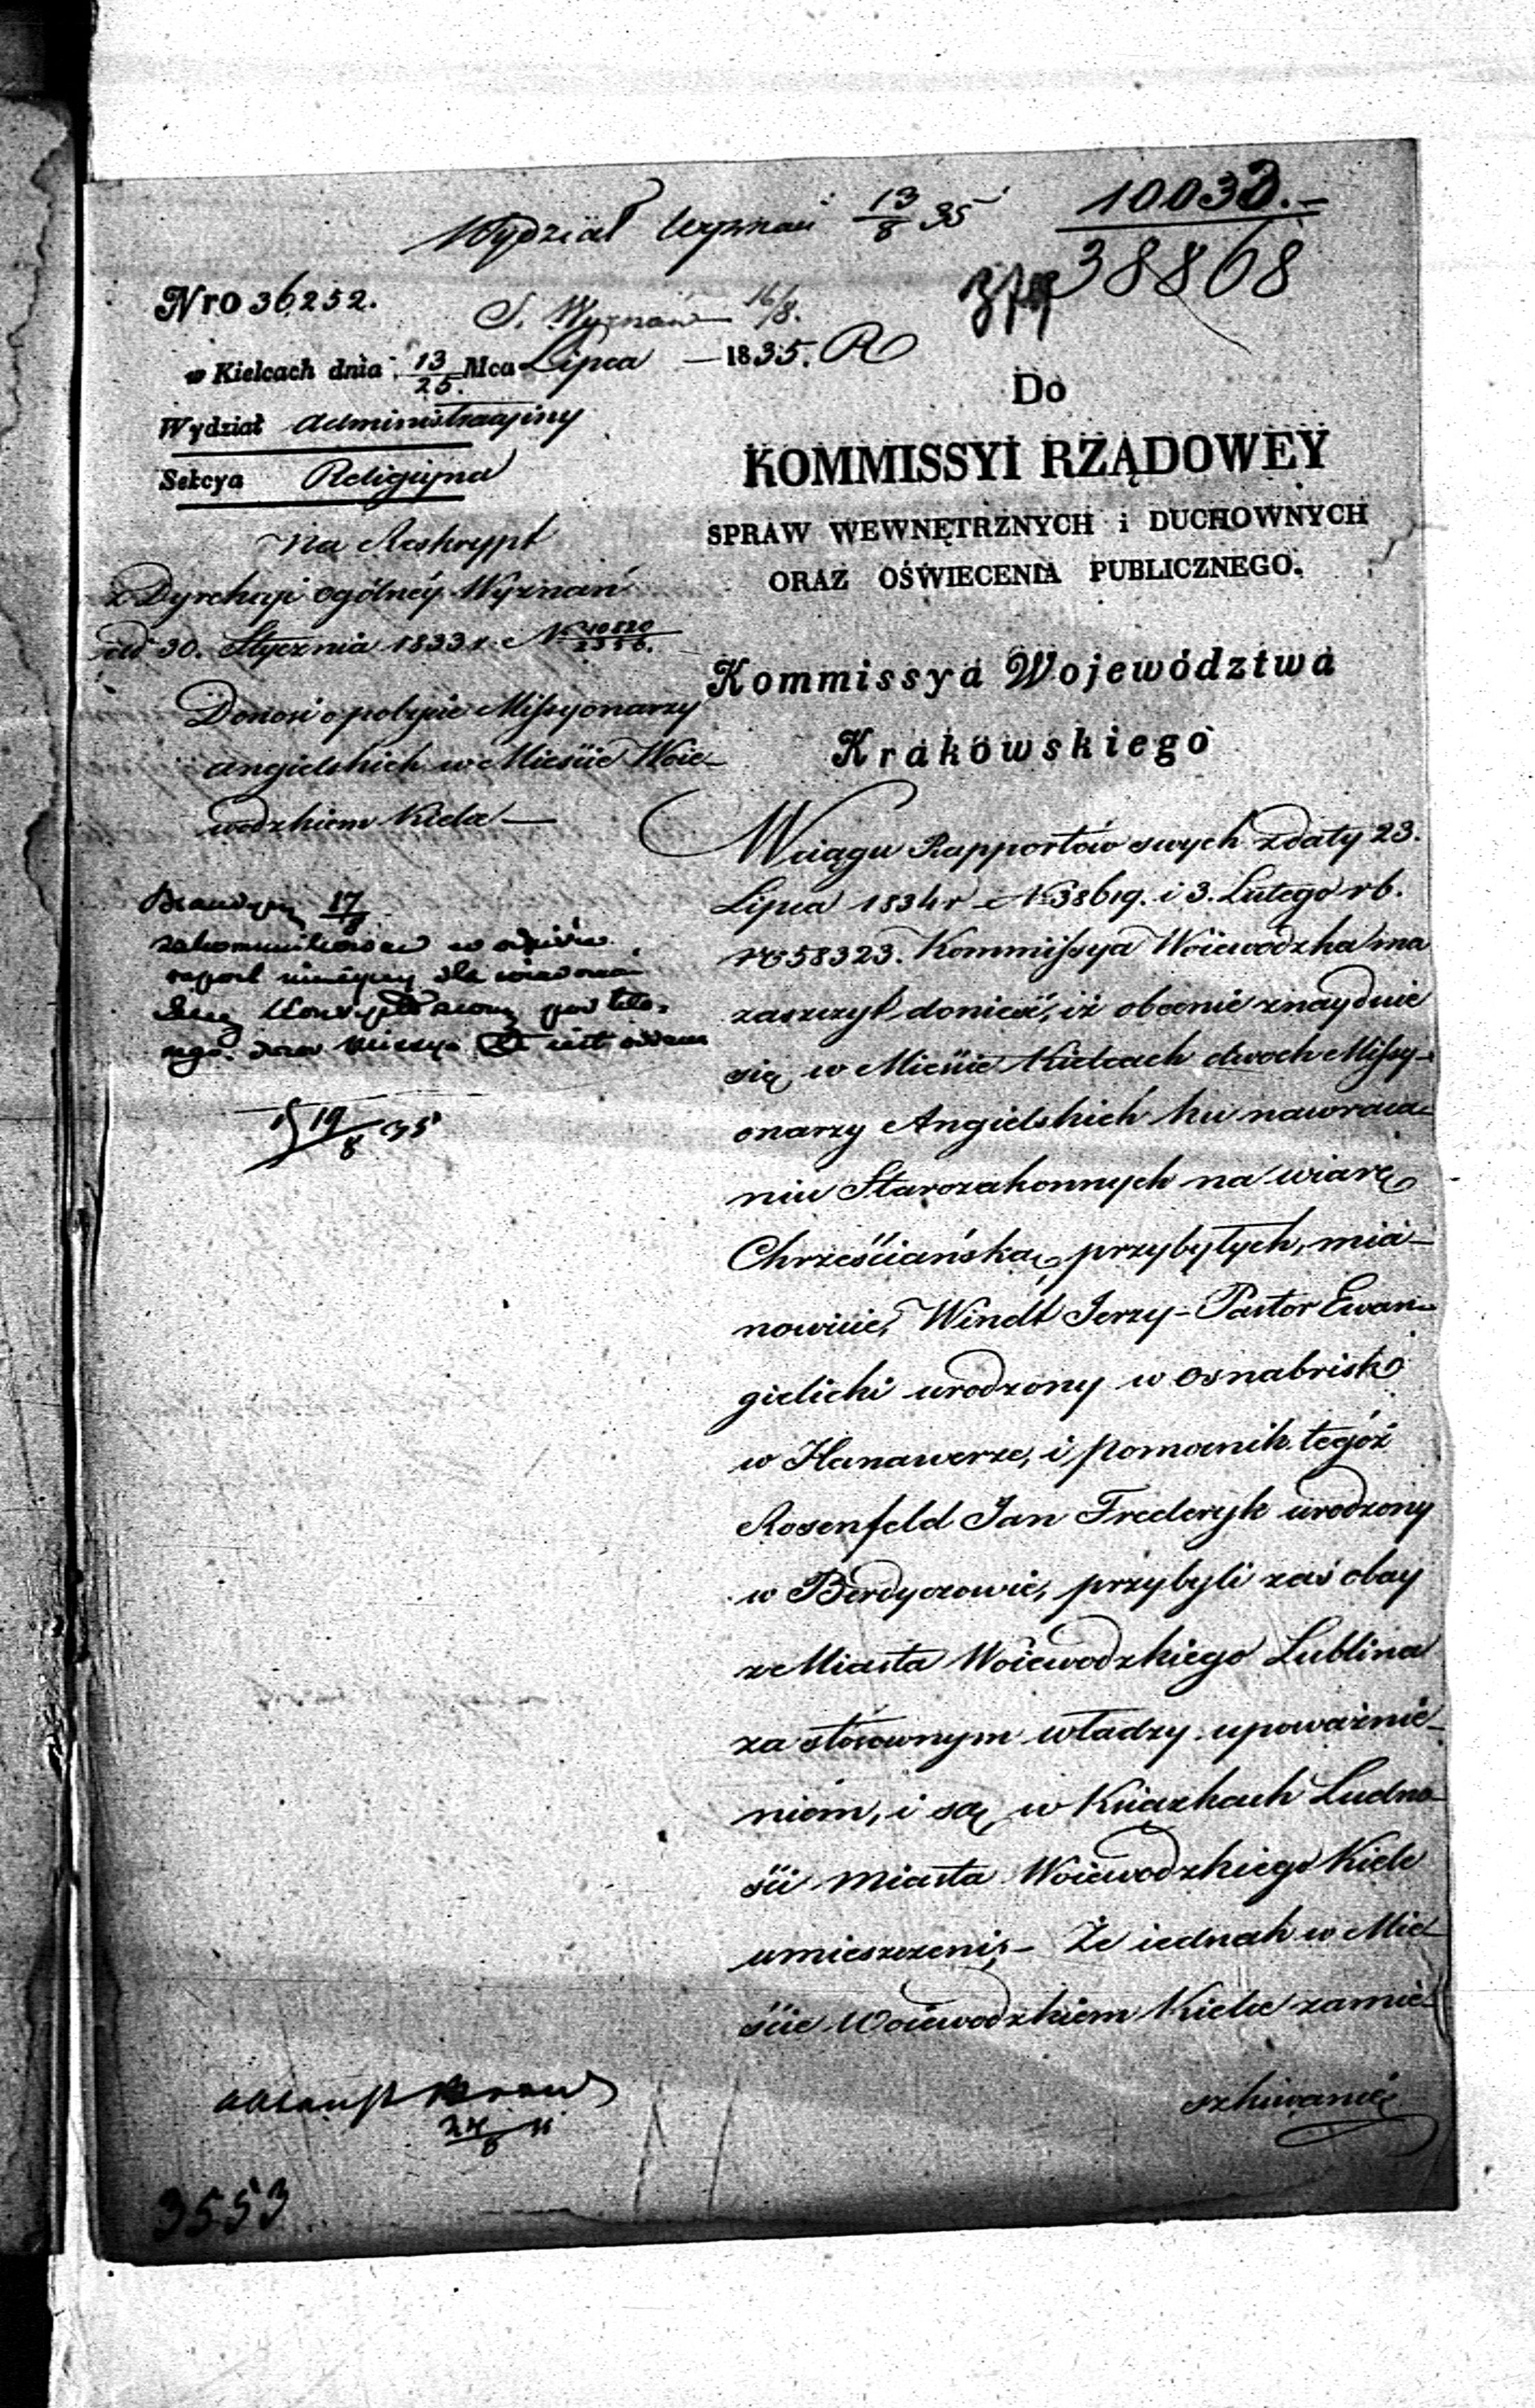 Wydział Wyznań 13/8 35
10033.–
38868
Nro 36252.
S. Wyznań 16/8.
w Kielcach dnia 13/25. Mca Lipca – 1835. R
Wydział Administracyiny
Sekcya Religijna
Na Reskrypt
z Dyrekcji Ogólnéy Wyznań
od 30. Stycznia 1833 r. N 10820/2356.
Donosi o pobycie Missyonarzy
angielskich w Mieście Woie-
wodzkiem Kielce –
17/8
zakomunikować w
raport ninieyszy dla
19/8 35
24/8
3553
Do
KOMMISSYI RZĄDOWEY
SPRAW WEWNĘTRZNYCH i DUCHOWNYCH
ORAZ OŚWIECENIA PUBLICZNEGO.
Kommissya Województwa
Krakowskiego
W ciągu Rapportów swych z daty 23.
Lipca 1834 r N 38619. i 3. Lutego r b.
N 58323. Kommissya Woiewódzka ma
zaszczyt donieść, iż obecnie znayduie
się w Mieście Kielcach dwoch Missy-
onarzy Angielskich ku nawraca-
niu Starozakonnych na wiarę
Chrześciańską, przybyłych, mia-
nowicie, Windt Jerzy – Pastor Ewan-
gielicki urodzony w Osnabrisk
w Hanawerze, i pomocnik tegóż
Rosenfeld Jan Frederyk urodzony
w Berdyczowie, przybyli zaś obay
z Miasta Woiewodzkiego Lublina
za stosownym władzy upoważnie-
niem, i są w Księżkach Ludno-
ści Miasta Woiewodzkiego Kielc
umieszczeni, – Że iednak w Mie-
ście Woiewodzkiem Kielce zamie-
szkiwanie